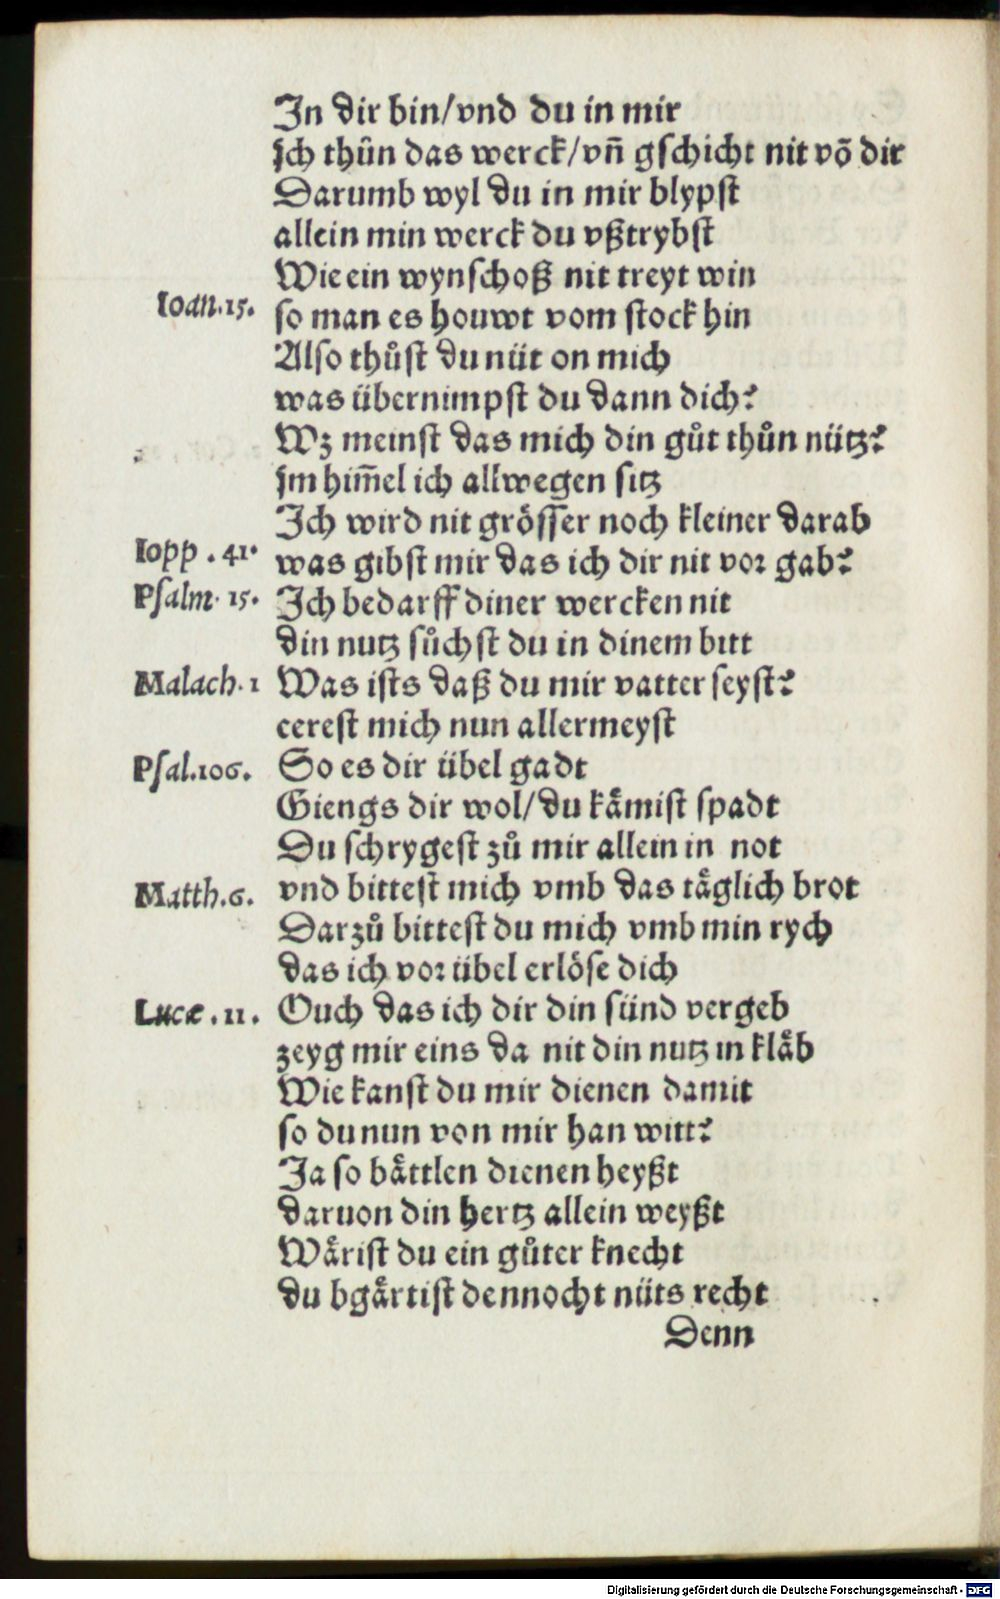 In dir bin/vnd du in mir
ich thůn das werck/vñ gschicht nit võ dir
Darumb wyl du in mir blypst
allein min werck du vßtrybst
Wie ein wynschoß nit treyt win
Ioan.15. so man es houwt vom stock hin
Also thůst du nüt on mich
was übernimpst du dann dich?
Wz meinst das mich din gůt thůn nütz?
im him̄el ich allwegen sitz
Ich wird nit grösser noch kleiner darab
Iopp.41. was gibst mir das ich dir nit vor gab?
Psalm.15. Ich bedarff diner wercken nit
din nutz sůchst du in dinem bitt
Malach.1 Was ists daß du mir vatter seyst?
eerest mich nun allermeyst
Psal.106. So es dir übel gadt
Giengs dir wol/du kåmist spadt
Du schrygest zů mir allein in not
Matth.6. vnd bittest mich vmb das tåglich brot
Darzů bittest du mich vmb min rych
das ich vor übel erlöse dich
Lucæ.11. Ouch das ich dir din sünd vergeb
zeyg mir eins da nit din nutz in klåb
Wie kanst du mir dienen damit
so du nun von mir han witt?
Ja so båttlen dienen heyßt
daruon din hertz allein weyßt
Wårist du ein gůter knecht
du bgårtist dennocht nüts recht
Denn
Digitalisierung gefördert durch die Deutsche Forschungsgemeinschaft - DFG